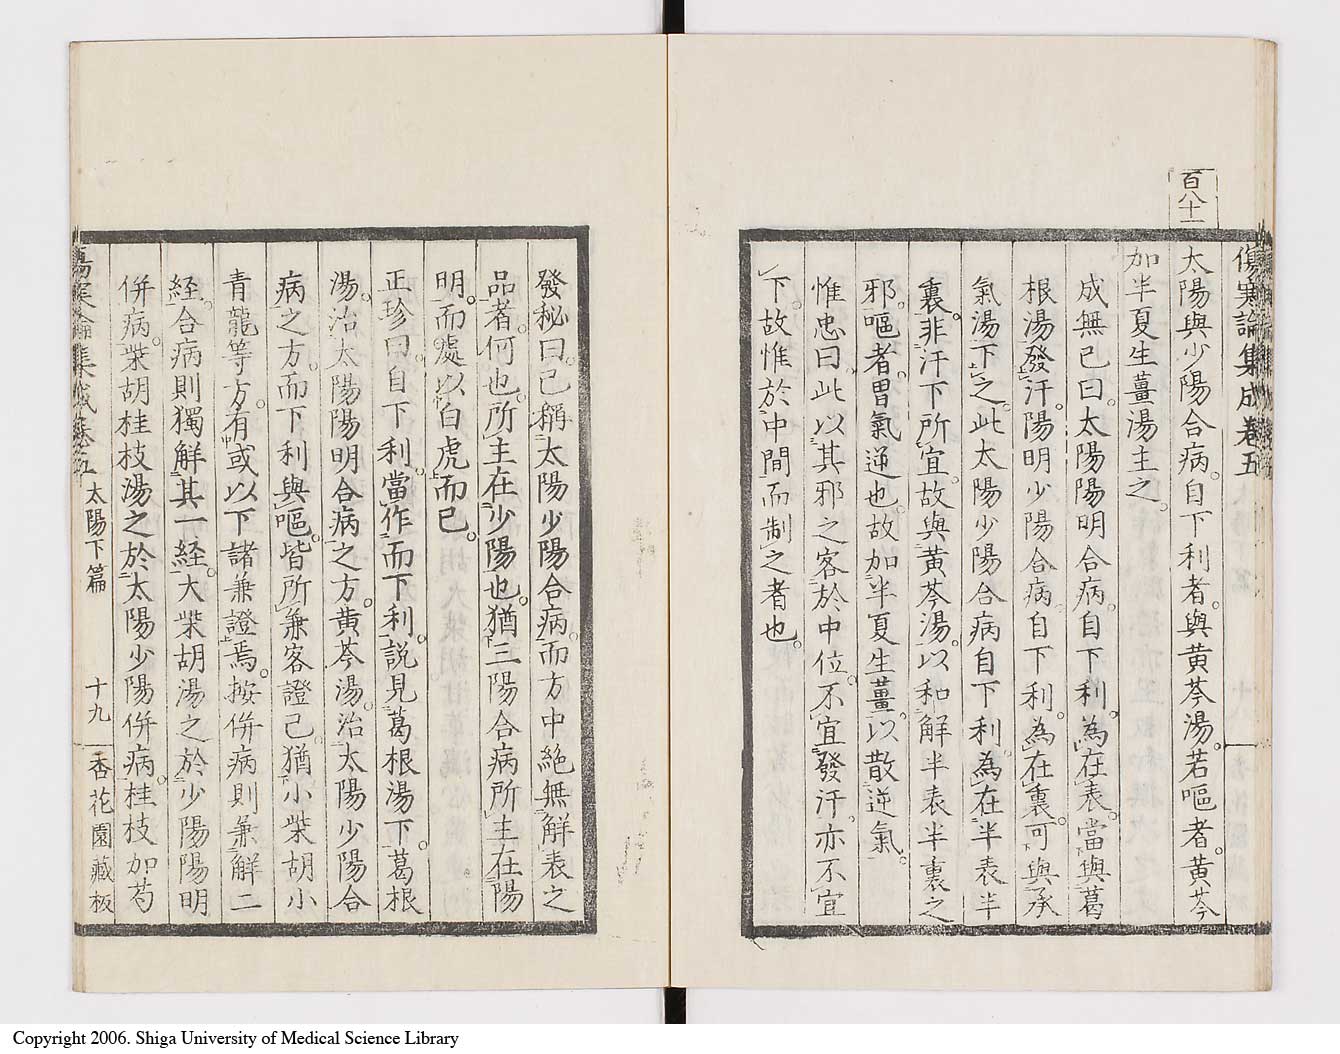 傷寒論集成卷五
百八十一
太陽與少陽合病。自下利者。與黄芩湯。若嘔者。黄芩
加半夏生薑湯主之。
成無已曰。太陽陽明合病。自下利。為在表。當與葛
根湯發汗。陽明少陽合病。自下利。為在裏。可與承
氣湯下之。此太陽少陽合病自下利。為在半表半
裏。非汗下所宜。故與黄芩湯。以和解半表半裏之
邪。嘔者。胃氣逆也。故加半夏生薑。以散逆氣。
惟忠曰。此以其邪之客於中位。不宜發汗。亦不宜
下。故惟於中間而制之者也。
發秘曰。已稱太陽少陽合病。而方中絶無解表之
品者。何也。所主在少陽也。猶三陽合病所主在陽
明。而處以白虎而已。
正珍曰。自下利。當作而下利。説見葛根湯下。葛根
湯。治太陽陽明合病之方。黄芩湯。治太陽少陽合
病之方。而下利與嘔。皆所兼客證已。猶小柴胡小
青龍等方。有或以下諸兼證焉。按併病則兼解二
経。合病則獨解其一経。大柴胡湯之於少陽陽明
併病。柴胡桂枝湯之於太陽少陽併病。桂枝加芍
傷寒論集成卷五 太陽下篇 十九 香花園藏板
Copyright 2006. Shiga University of Medical Science Library